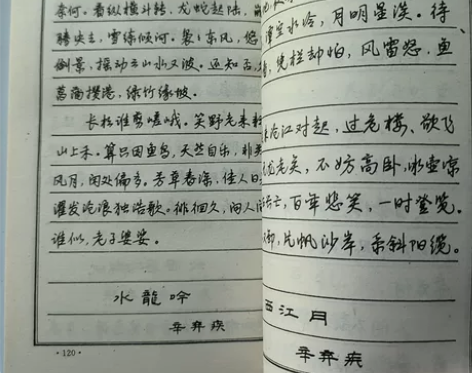 奈何。看纵横斗转，龙蛇起陆，
腾决去，雪练倾河。袅袅东风，悠
倒景，摇动云山水又波。还知否，
菖蒲攒港，绿竹缘坡。
长松谁剪嵯峨。笑野老来耘
山上禾。算只因鱼鸟，天然自乐，非关
风月，闲处偏多。芳草春深，佳人日
濯发沧浪独浩歌。徘徊久，问人
谁似，老子婆娑。
水龍吟
辛弃疾
·120·
潭空水冷，月明星淡。待
凭栏却怕，风雷怒，鱼
束沧江对起，过危楼、欲飞
元龙老矣，不妨高卧，冰壶凉
兴亡，百年悲笑，一时登览。
又卸，片帆沙岸，系斜阳缆。
西江月
辛弃疾